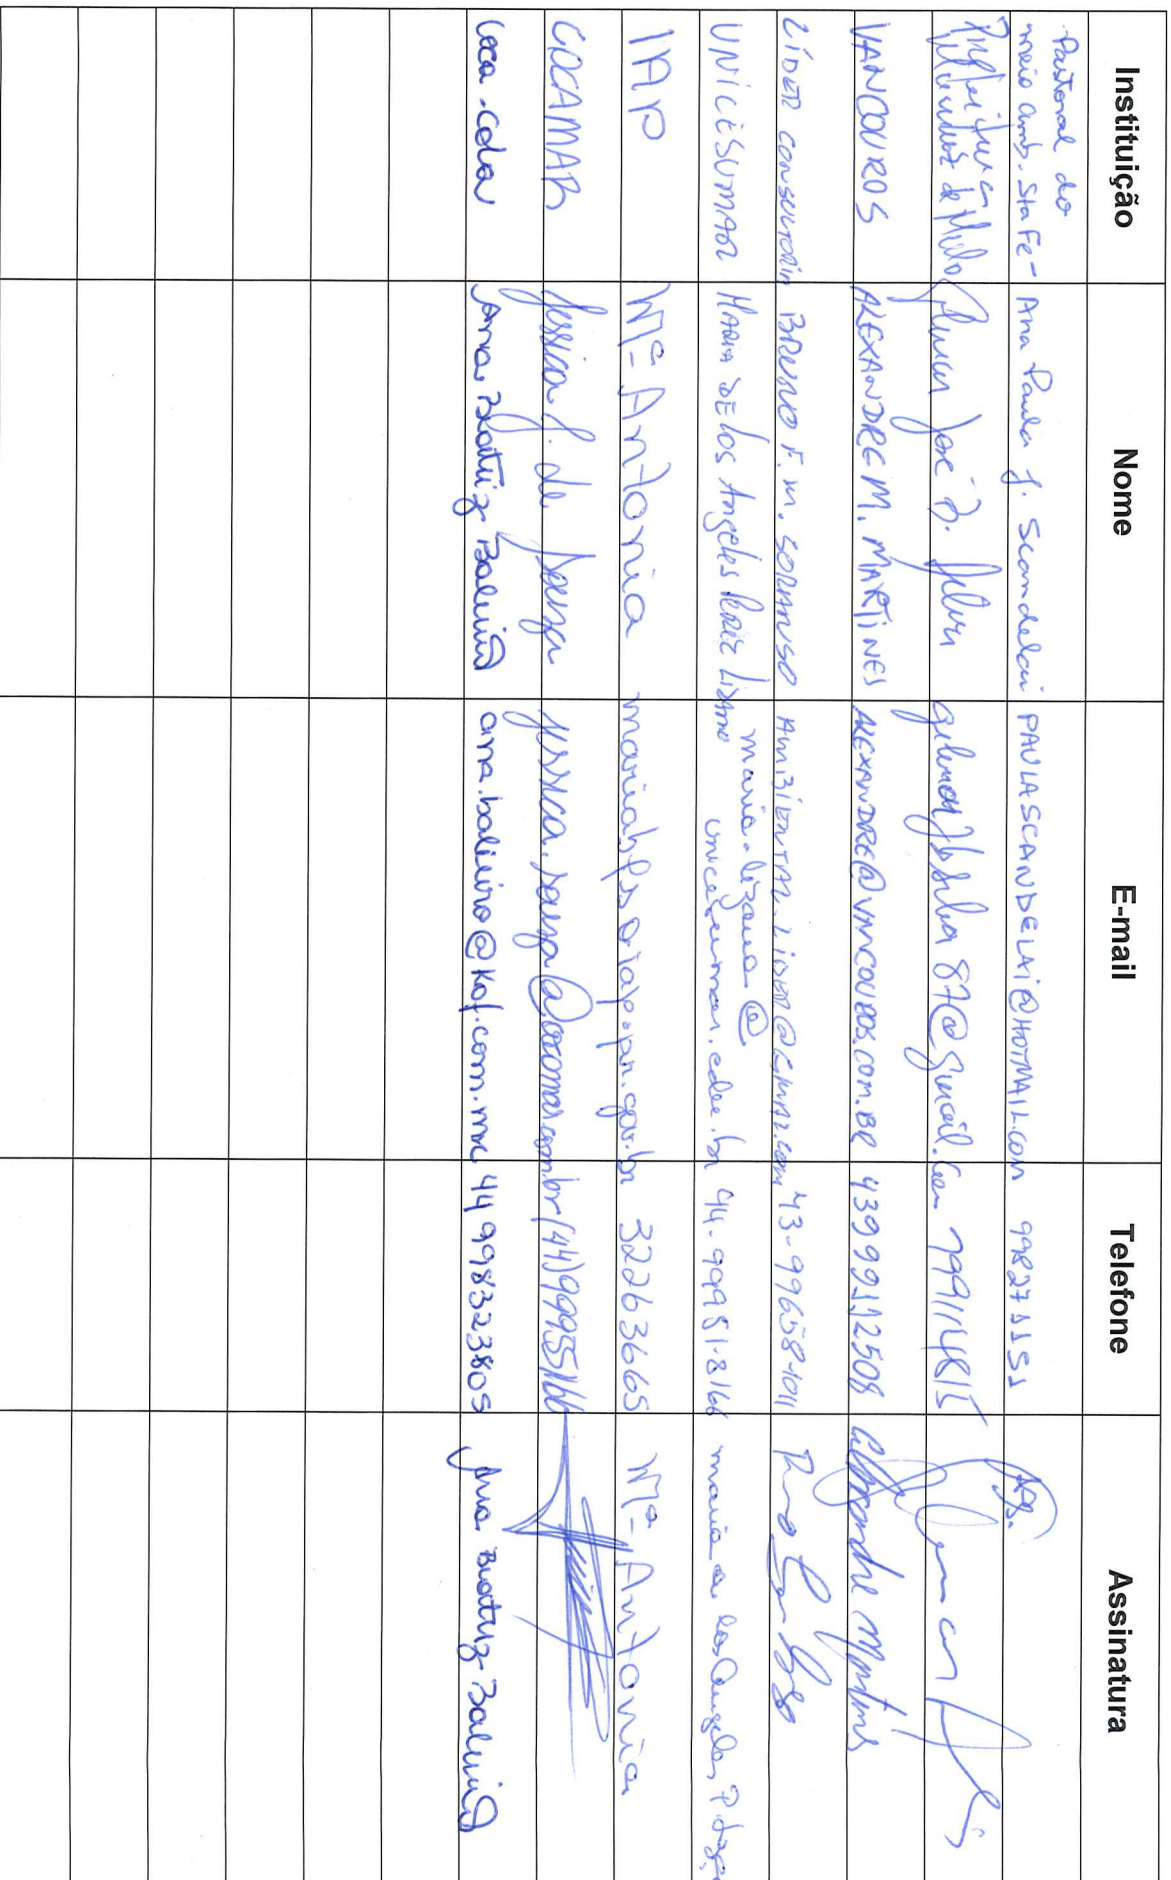 Instituição Nome E-mail Telefone Assinatura
Pastoral do
meio amb. Sta Fé - Ana Paula J. Scandelai PAULASCANDELAI@HOTMAIL.COM 998271151
Prefeitura
José 87@gmail.com
VANCOUROS ALEXANDRE M. MARTINES ALEXANDRE@VANCOUROS.COM.BR 43999112508 Alexandre Martines
LÍDER CONSULTORIA BRUNO F. M. AMBIENTAL.LIDER@GMAIL.COM 43-99658-1011
UNICESUMAR MARIA DE LOS Angeles Perez Lizama maria.lizama@
unicesumar.edu.br 44-99981-8166 maria de los Angeles P.
IAP Mª Antonia 32263665 Mª Antonia
COCAMAR Jessica J. de Souza jessica.souza@cocamar.com.br (44)
Coca-Cola Ana Beatriz Balieiro ana.balieiro@kof.com.mx 44 998323805 Ana Beatriz Balieiro